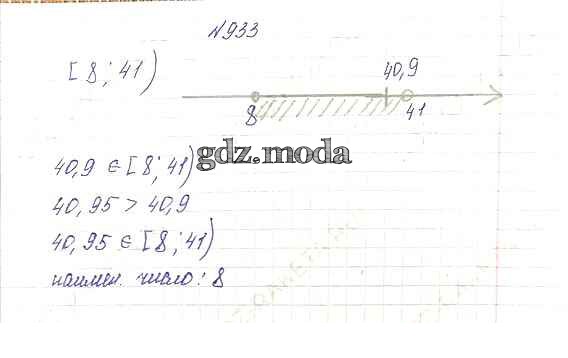 №933
[8; 41)
40,9
8
41
40,9 ∈ [8; 41)
gdz.moda
40,95 > 40,9
40,95 ∈ [8; 41)
наимен. число: 8